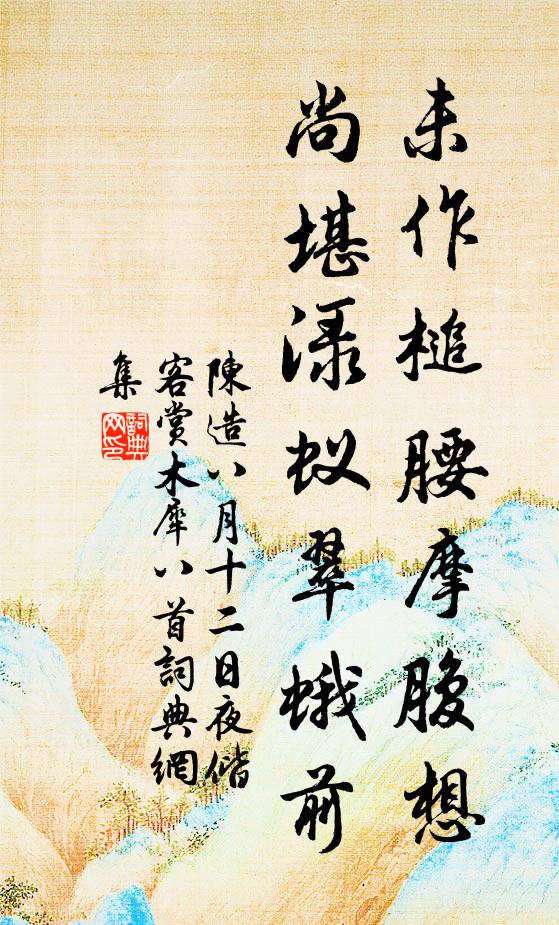 未作槌腰摩腹想
尚堪渌蚁翠蛾前
陳造八月十二日夜偕
客赏木犀八首詞典網
集
詞典
网印